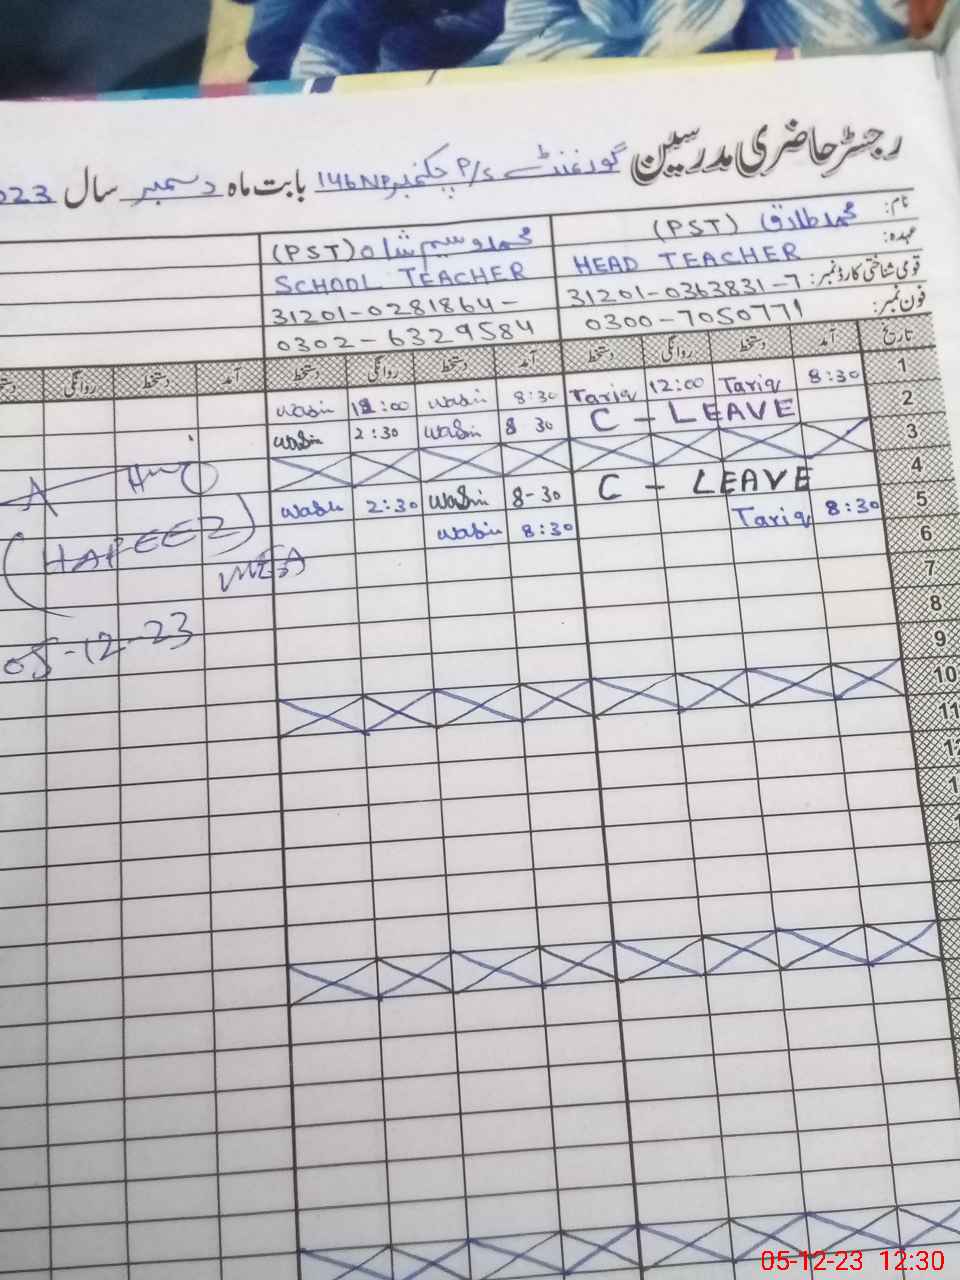 رجسٹر حاضری مدرسین گورنمنٹ P/S چکنمبر 146NP بابت ماہ دسمبر سال 2023
نام: محمد طارق (PST) محمد وسیم شاہ (PST)
عہدہ: HEAD TEACHER SCHOOL TEACHER
قومی شناختی کارڈ نمبر: 31201-0363831-7 31201-0281864-
فون نمبر: 0300-7050771 0302-6329584
تاریخ آمد دستخط روانگی دستخط آمد دستخط روانگی دستخط آمد دستخط روانگی
1 8:30 Tariq 12:00 Tariq 8:30 Wasim 12:00 Wasim
2 C - LEAVE 8 30 Wasim 2:30 Wasim
3
4 C - LEAVE 8-30 Wasim 2:30 Wasim
5 8:30 Tariq 8:30 Wasim
6
7
8
9
10
11
(HAFEEZ)
MEA
05-12-23
05-12-23 12:30